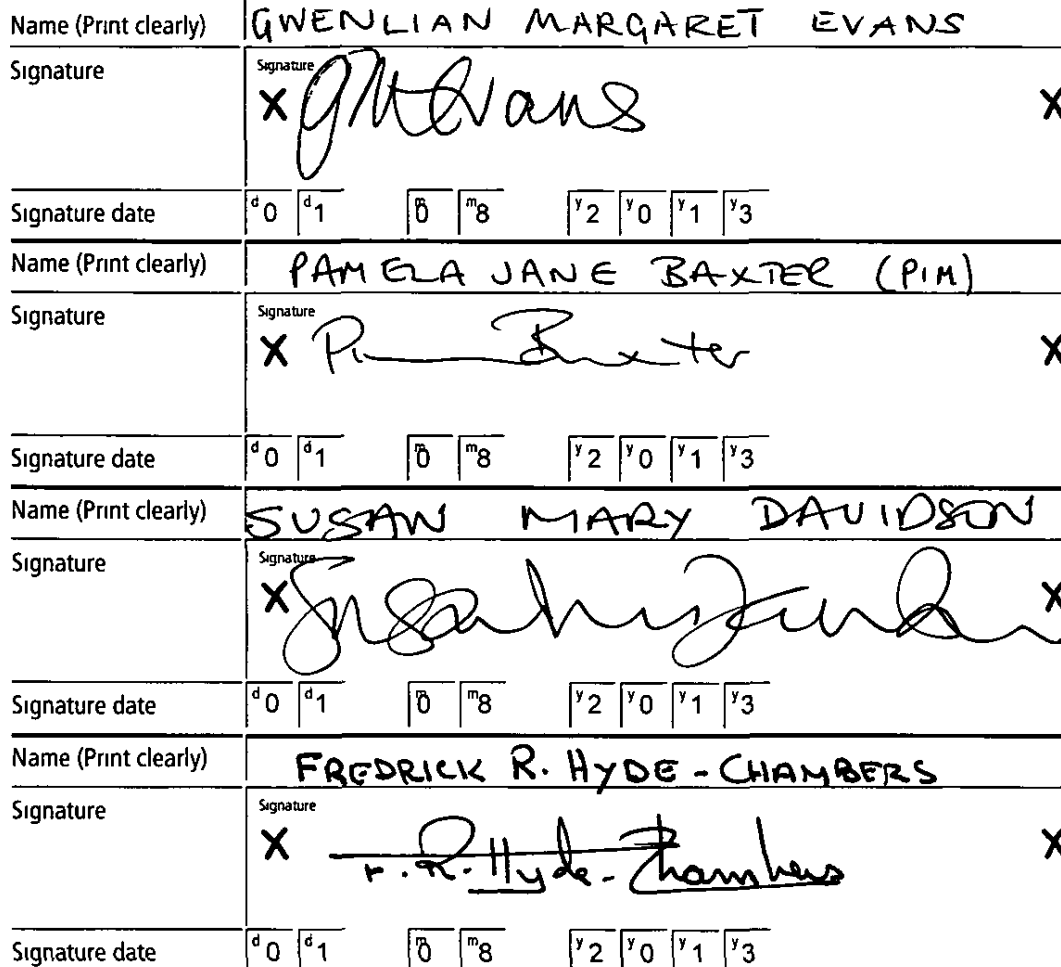 Name (Print clearly) GWENLIAN MARGARET EVANS
Signature Signature
X GM Evans X
Signature date d0 d1 m0 m8 y2 y0 y1 y3
Name (Print clearly) PAMELA JANE BAXTER (PIM)
Signature Signature
X Pim Baxter X
Signature date d0 d1 m0 m8 y2 y0 y1 y3
Name (Print clearly) SUSAN MARY DAVIDSON
Signature Signature
X Susan X
Signature date d0 d1 m0 m8 y2 y0 y1 y3
Name (Print clearly) FREDRICK R. HYDE-CHAMBERS
Signature Signature
X F. R. Hyde-Chambers X
Signature date d0 d1 m0 m8 y2 y0 y1 y3